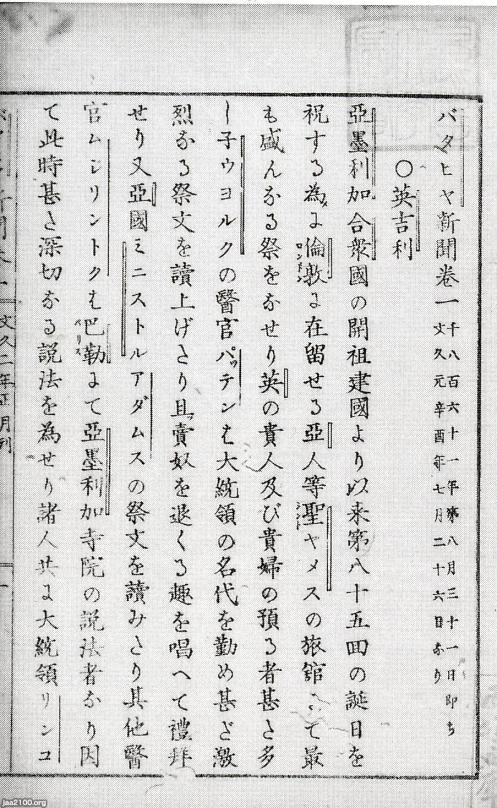 バタヒヤ新聞卷一 千八百六十一年第八月三十一日即ち
文久元辛酉年七月二十六日なり
〇英吉利
亞墨利加合衆國の開祖建國より以来第八十五回の誕日を
祝する為に倫敦に在留せる亞人等聖ヤメスの旅館にて最
も盛んなる祭をなせり英の貴人及び貴婦の預る者甚だ多
し子ウヨルクの醫官パッテンは大統領の名代を勤め甚だ激
烈なる祭文を讀上げたり且賣奴を退くる趣を唱へて禮拜
せり又亞國ミニストルアダムスの祭文を讀みたり其他醫
官ムシリントクは巴勒にて亞墨利加寺院の説法者なり因
て此時甚だ深切なる説法を為せり諸人共に大統領リンコ
文久二年正月刊
jaa2100.org